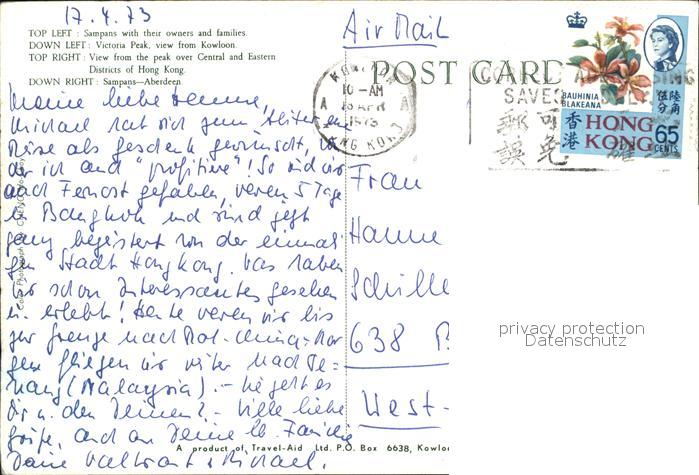 17.4.73
TOP LEFT : Sampans with their owners and families.
DOWN LEFT : Victoria Peak, view from Kowloon.
TOP RIGHT : View from the peak over Central and Eastern
Districts of Hong Kong.
DOWN RIGHT : Sampans—Aberdeen.
Air Mail
POST CARD
HONG KONG
10-AM
A A
APR
1973
HONG KONG
SAVES
郵可
誤免
BAUHINIA
BLAKEANA
伍陸
分角
香港
HONG
KONG
65
CENTS
Meine liebe Hanne,
Michael hat sich zum Abitur eine
Reise als Geschenk gewünscht, von
der ich auch "profitiere"! So sind wir
nach Fernost gefahren, waren 5 Tage
in Bangkok und sind jetzt
ganz begeistert von der einmali-
gen Stadt Hongkong. Was haben
wir schon Interessantes gesehen
u. erlebt! Heute waren wir bis
zur Grenze nach Rot-China. Mor-
gen fliegen wir weiter nach Pe-
nang (Malaysia). – Wie geht es
Dir u. den Deinen? – Viele liebe
Grüße, auch an Deine lb. Familie
Deine u. Michael.
Frau
Hanne
Schille
638 B
West-
privacy protection
Datenschutz
A product of Travel-Aid Ltd. P.O. Box 6638, Kowloo